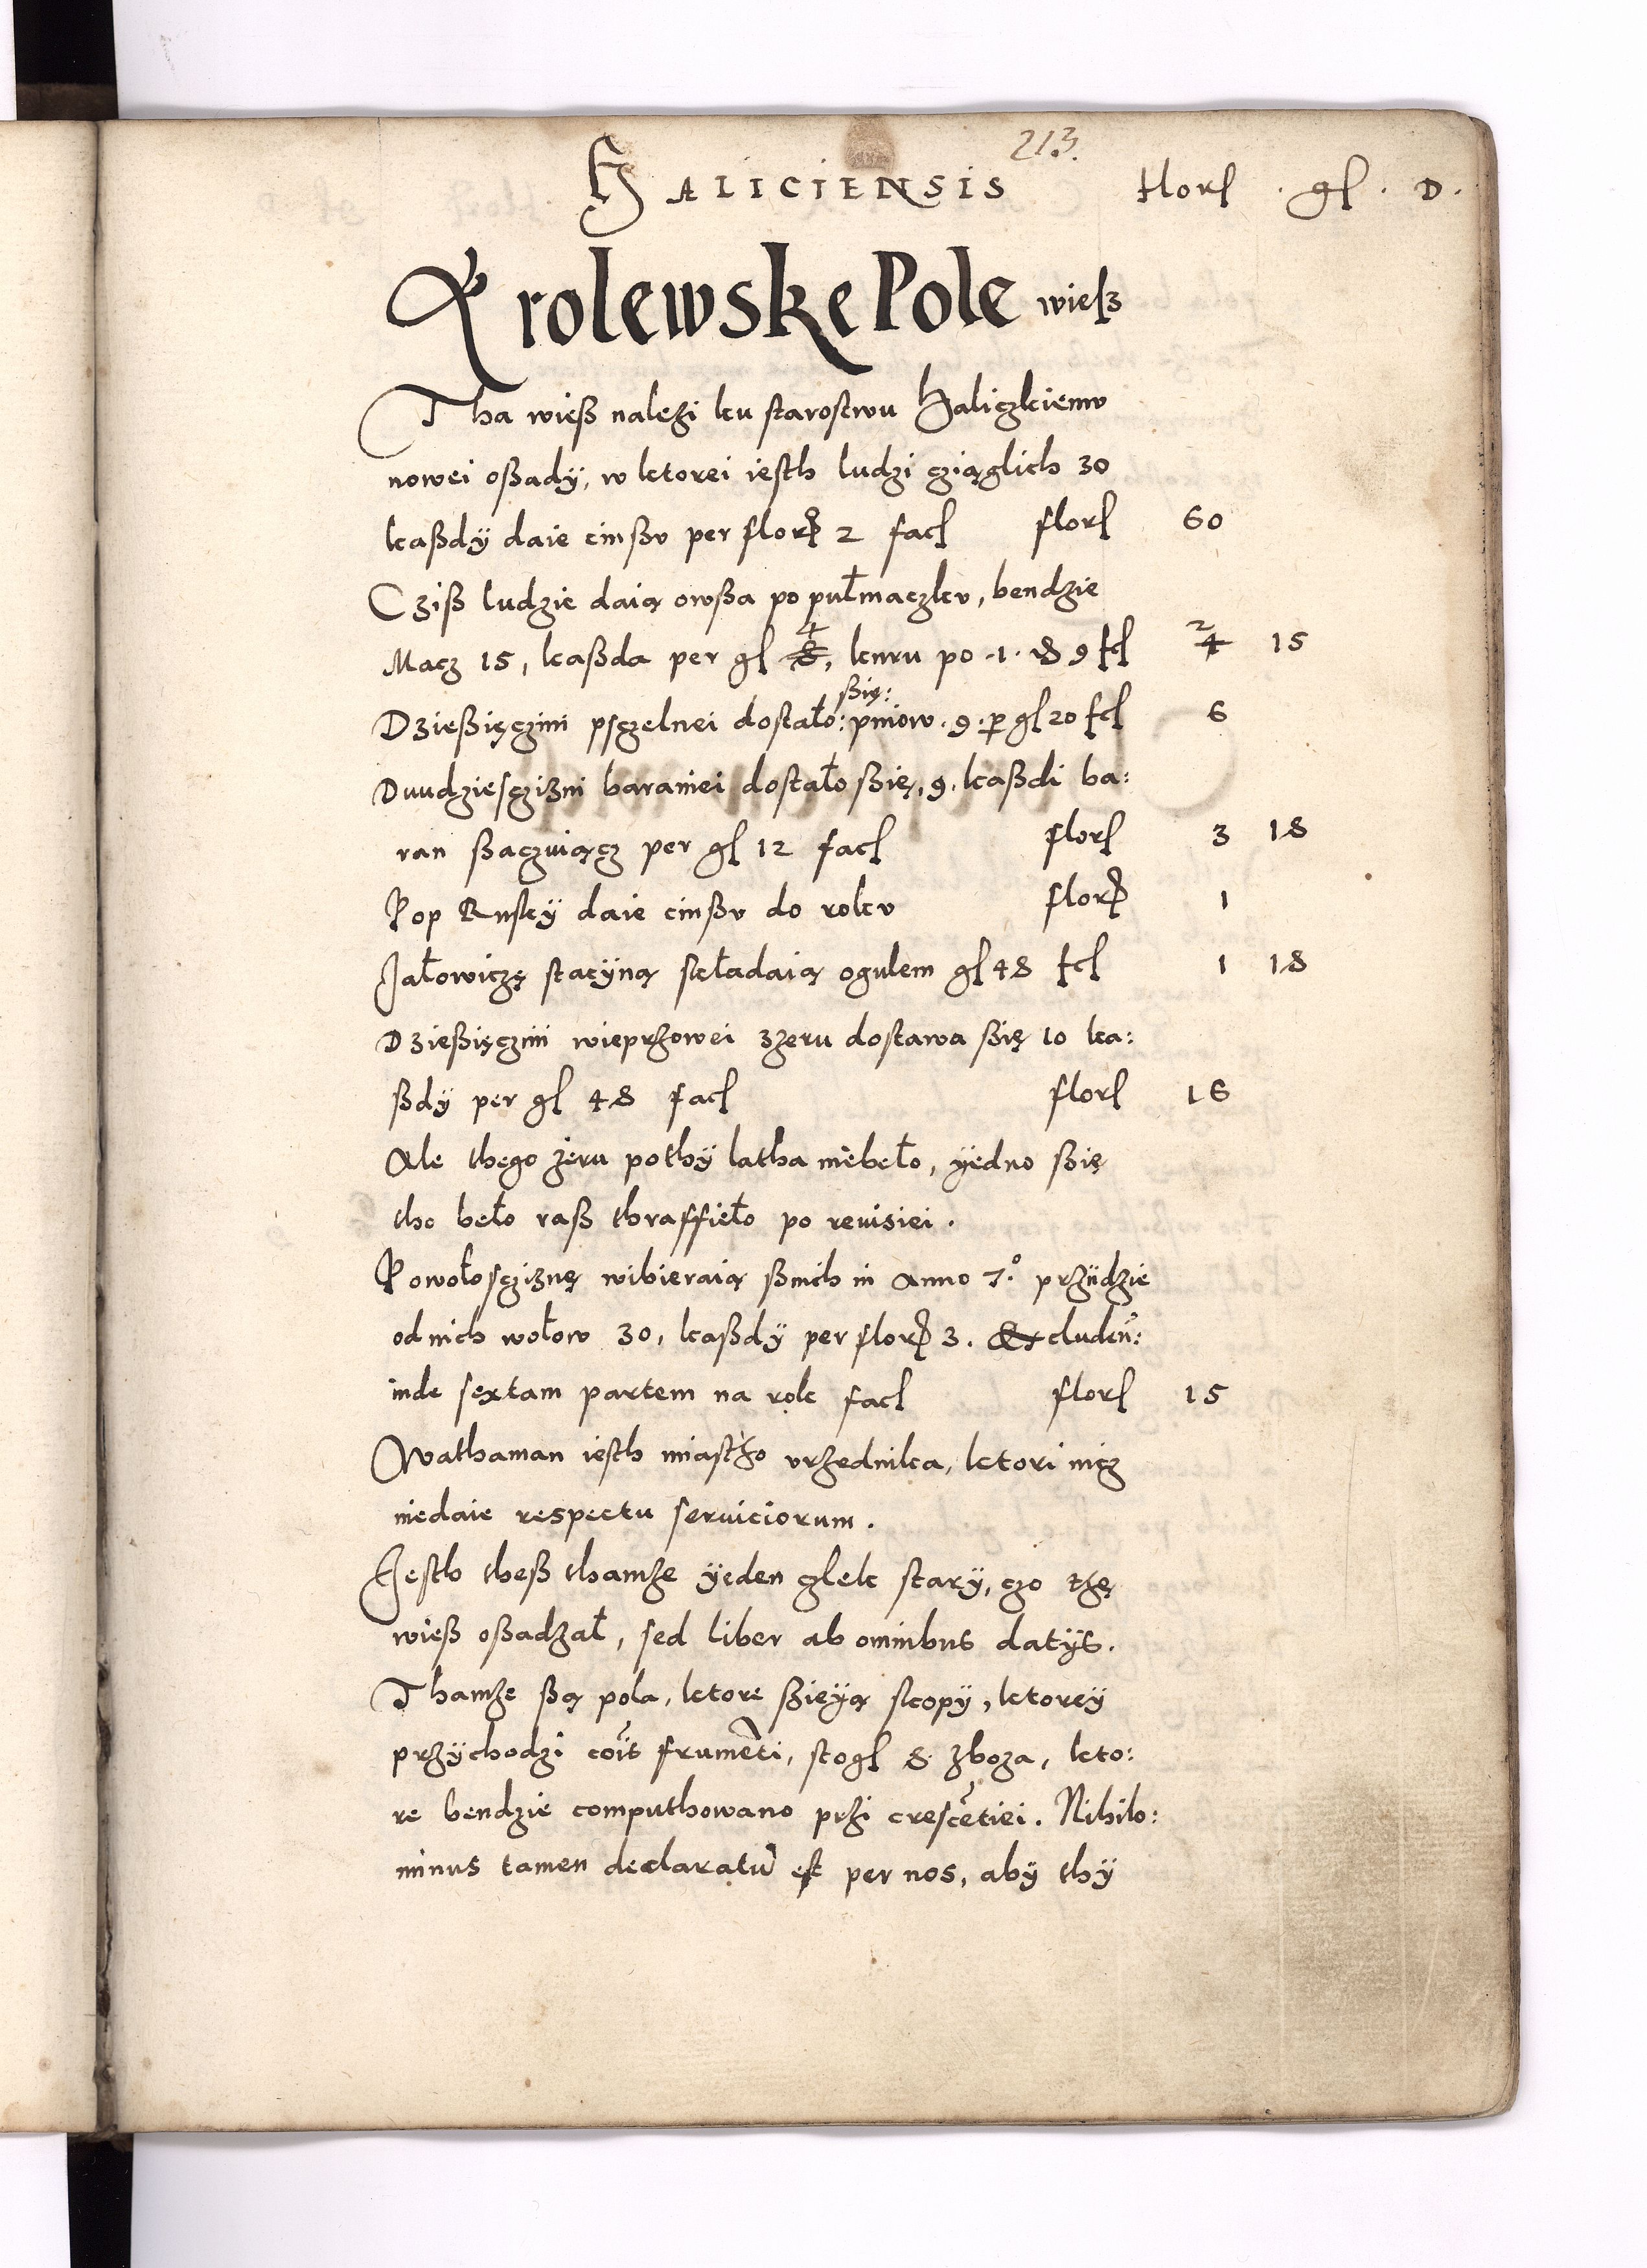 213.
HALICIENSIS florſ . gſ . D .
Krolewske Pole wieſz
Tha wieß należi ku starostwu Haliczkiemv
nowei oßadÿ, w ktorei iesth ludzi cziąglich 30
kaßdÿ daie cinßv per flor 2 facſ florſ 60
Cziß ludzie daią owßa po pułmaczkv, bendzie
4
Macz 15, kaßda per gſ 8, kcuru po .1. 8 9 fcſ 2 4 15
ßię:
Dzießięczini psczelnei dostało: pniow . 9 . per gſ 20 fcſ 6
Dwudziesczizni baraniei dostało ßię, 9. kaßdi ba:
ran ßaczuiącz per gſ 12 facſ florſ 3 18
Pop Ruskÿ daie cinßv do rokv flor 1
Jałowiczę stacÿną składaią ogulem gſ 48 fcſ 1 18
Dzießięczini wieprzowei zżeru dostawa ßię 10 ka:
ßdÿ per gſ 48 facſ florſ 16
Ale thego żeru pothÿ latha niebeło, ÿedno ßię
tho beło raß thraffieło po reuisiei .
Powołoscziznę wibieraią ßnich in Anno 7.º przÿdzie
od nich wołow 30, kaßdÿ per flor 3. Excluden:
inde sextam partem na rok facſ florſ 15
Wathaman iesth miasto vrzednika, ktori nicz
niedaie respectu seruiciorum .
Jesth theß thamże ÿeden człek starÿ, czo thę
wieß oßadzał, sed liber ab omnibus datÿs.
Thamże ßą pola, ktore ßieÿą kopÿ, ktoreÿ
przÿchodzi coīt frumēti, stogſ 8 zboza, kto:
re bendzie computhowano przi crescētiei. Nihilo:
minus tamen declaratū est per nos, abÿ thÿ